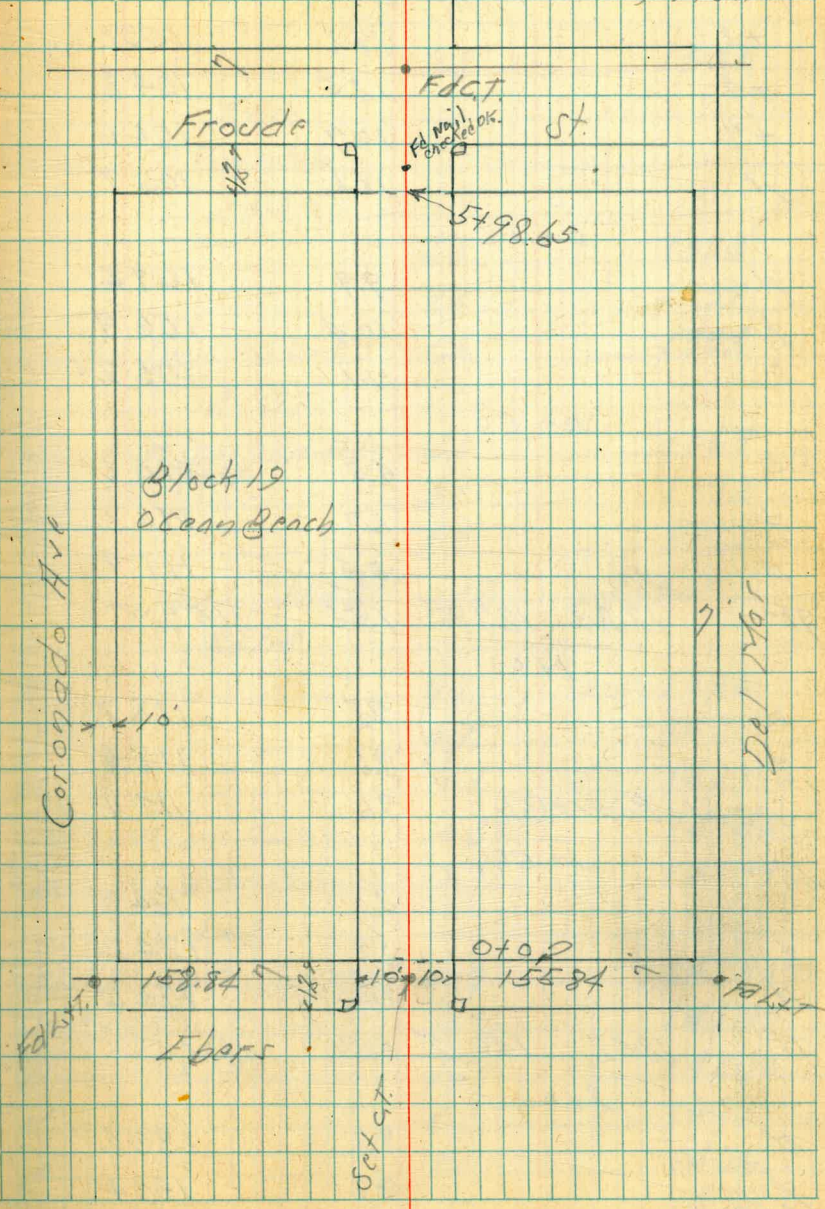 7
Fd C.T.
Froude
St.
Fd Nail
checked OK.
12'
5+98.65
Block 19
Ocean Beach
Coronado Ave
10'
7
Del Mar
0+00
158.84
7
12'
10'
10'
155.84
7
Fd L+T.
Fd L+T
Ebers
Set C.T.